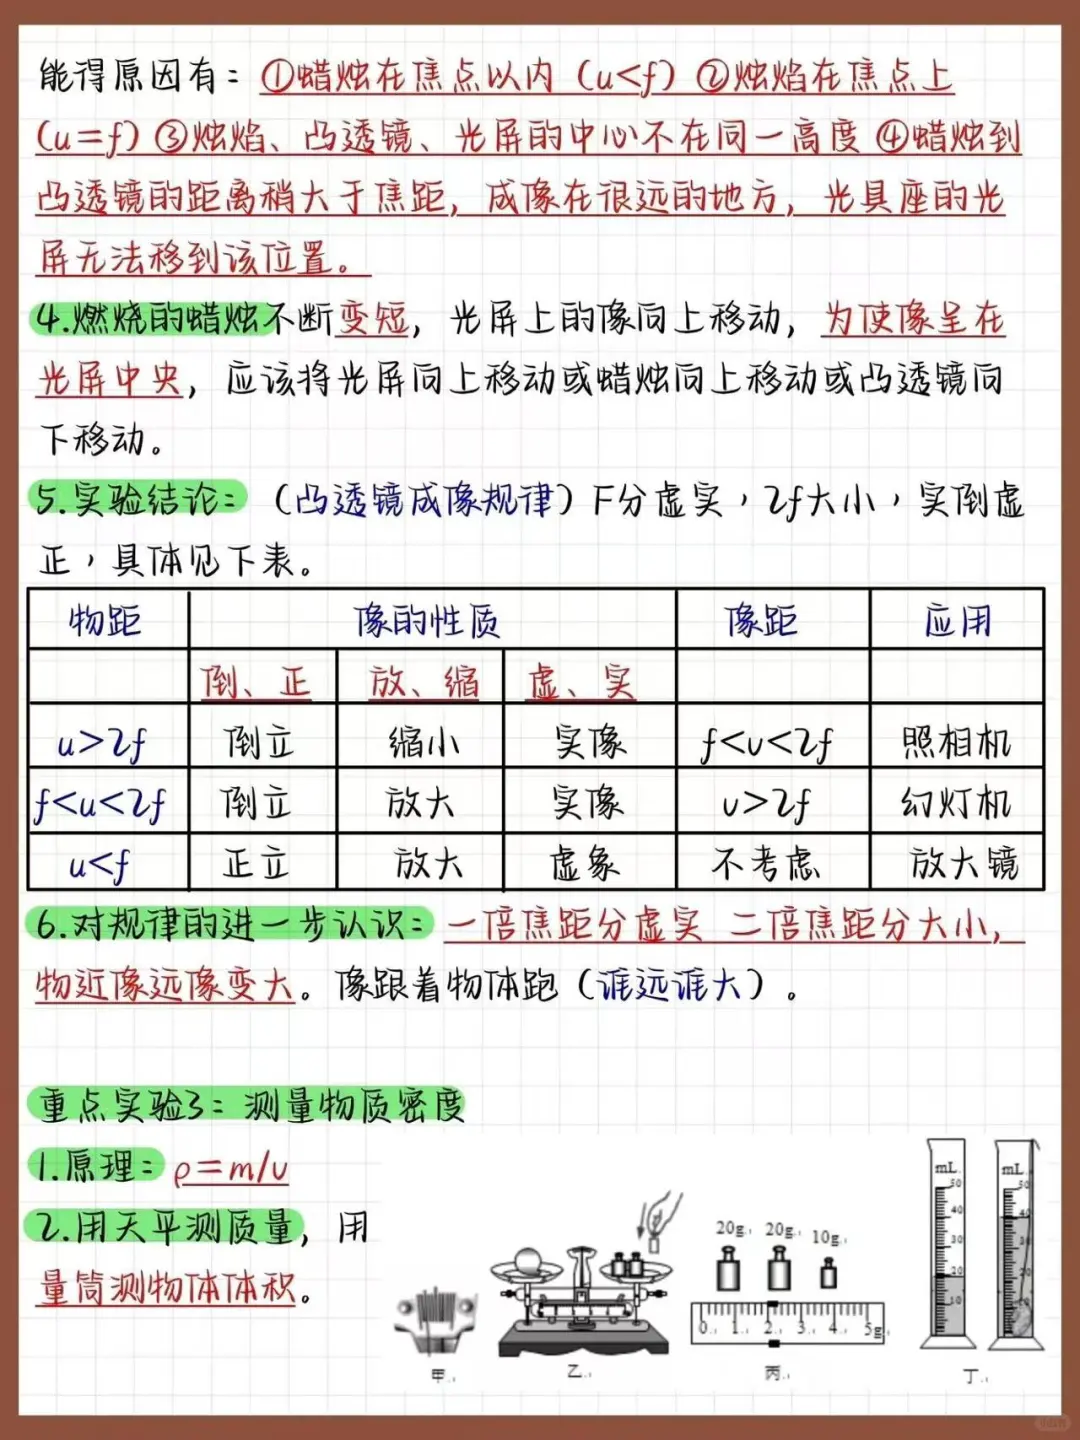 能得原因有：①蜡烛在焦点以内（u<f）②烛焰在焦点上
（u=f）③烛焰、凸透镜、光屏的中心不在同一高度 ④蜡烛到
凸透镜的距离稍大于焦距，成像在很远的地方，光具座的光
屏无法移到该位置。
4.燃烧的蜡烛不断变短，光屏上的像向上移动，为使像呈在
光屏中央，应该将光屏向上移动或蜡烛向上移动或凸透镜向
下移动。
5.实验结论：（凸透镜成像规律）F分虚实，2f大小，实倒虚
正，具体见下表。
物距 像的性质 像距 应用
倒、正 放、缩 虚、实
u>2f 倒立 缩小 实像 f<v<2f 照相机
f<u<2f 倒立 放大 实像 v>2f 幻灯机
u<f 正立 放大 虚象 不考虑 放大镜
6.对规律的进一步认识：一倍焦距分虚实 二倍焦距分大小，
物近像远像变大。像跟着物体跑（谁远谁大）。
重点实验3：测量物质密度
1.原理：ρ=m/v
2.用天平测质量，用
量筒测物体体积。
20g 20g 10g
0 1 2 3 4 5g
mL 50 40 30 20 10
mL 50 40 30 20 10
甲 乙 丙 丁